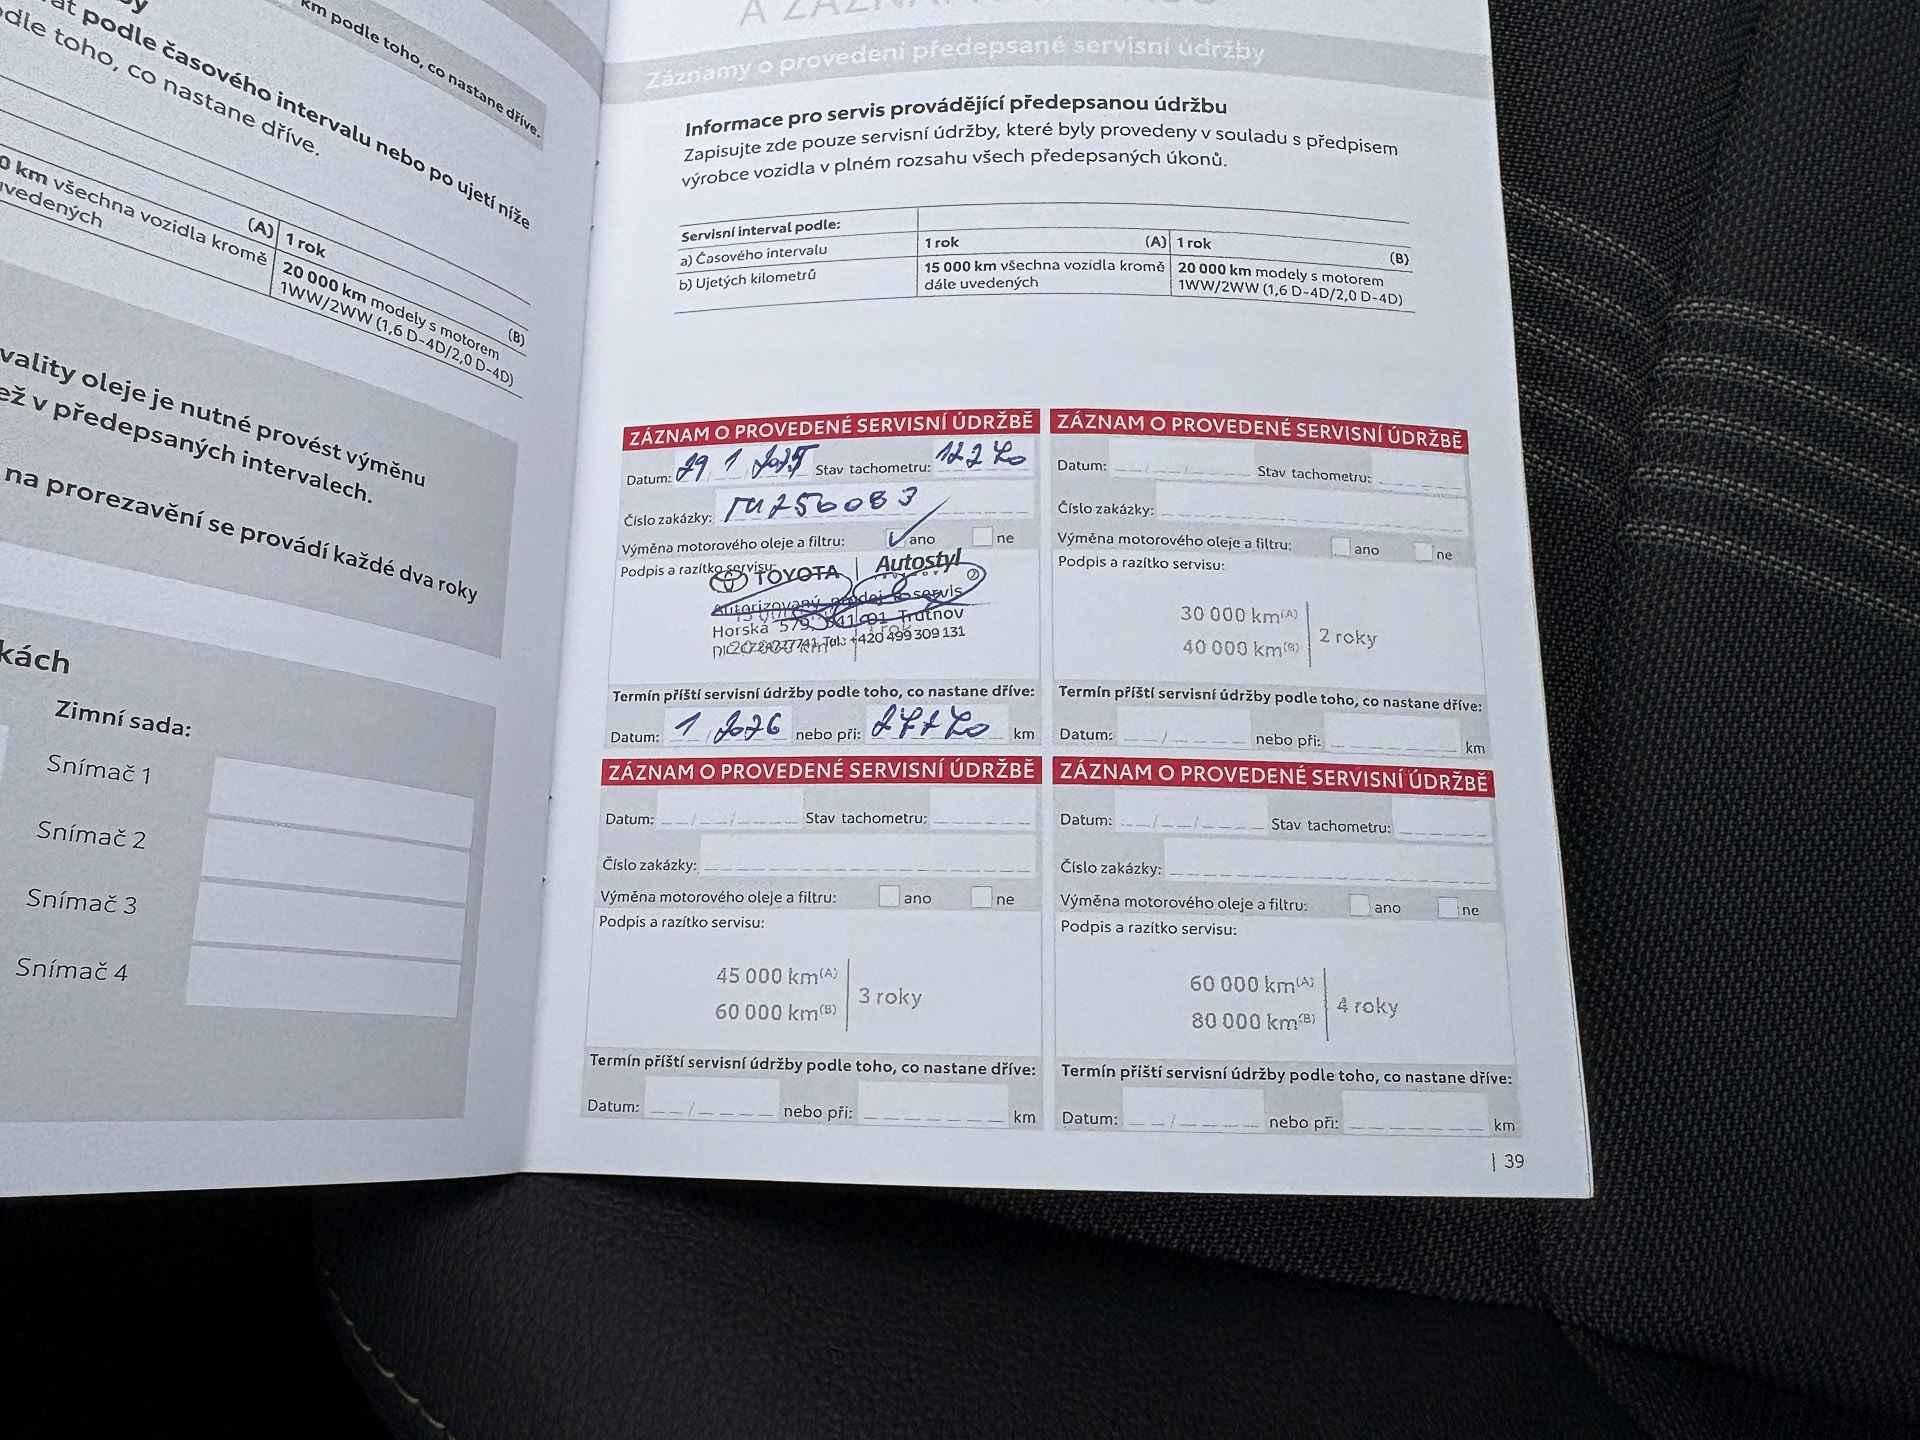 by
at podle časového intervalu nebo po ujetí níže
odle toho, co nastane dříve.
km podle toho, co nastane dříve.
(A) 1 rok
(B)
0 km všechna vozidla kromě
uvedených
20 000 km modely s motorem
1WW/2WW (1,6 D-4D/2,0 D-4D)
vality oleje je nutné provést výměnu
ež v předepsaných intervalech.
na prorezavění se provádí každé dva roky
kách
Zimní sada:
Snímač 1
Snímač 2
Snímač 3
Snímač 4
Záznamy o provedení předepsané servisní údržby
Informace pro servis provádějící předepsanou údržbu
Zapisujte zde pouze servisní údržby, které byly provedeny v souladu s předpisem
výrobce vozidla v plném rozsahu všech předepsaných úkonů.
Servisní interval podle:
a) Časového intervalu 1 rok (A) 1 rok (B)
b) Ujetých kilometrů 15 000 km všechna vozidla kromě 20 000 km modely s motorem
dále uvedených 1WW/2WW (1,6 D-4D/2,0 D-4D)
ZÁZNAM O PROVEDENÉ SERVISNÍ ÚDRŽBĚ
Datum: 29 1 2025 Stav tachometru:
Číslo zakázky:
Výměna motorového oleje a filtru: ano ne
Podpis a razítko servisu:
TOYOTA Autostyl
Autorizovaný prodej a servis
Horská 579, 541 01 Trutnov
Tel.: +420 499 309 131
Termín příští servisní údržby podle toho, co nastane dříve:
Datum: 1 2026 nebo při: km
ZÁZNAM O PROVEDENÉ SERVISNÍ ÚDRŽBĚ
Datum: Stav tachometru:
Číslo zakázky:
Výměna motorového oleje a filtru: ano ne
Podpis a razítko servisu:
30 000 km(A)
40 000 km(B)
2 roky
Termín příští servisní údržby podle toho, co nastane dříve:
Datum: nebo při: km
ZÁZNAM O PROVEDENÉ SERVISNÍ ÚDRŽBĚ
Datum: Stav tachometru:
Číslo zakázky:
Výměna motorového oleje a filtru: ano ne
Podpis a razítko servisu:
45 000 km(A)
60 000 km(B)
3 roky
Termín příští servisní údržby podle toho, co nastane dříve:
Datum: nebo při: km
ZÁZNAM O PROVEDENÉ SERVISNÍ ÚDRŽBĚ
Datum: Stav tachometru:
Číslo zakázky:
Výměna motorového oleje a filtru: ano ne
Podpis a razítko servisu:
60 000 km(A)
80 000 km(B)
4 roky
Termín příští servisní údržby podle toho, co nastane dříve:
Datum: nebo při: km
| 39